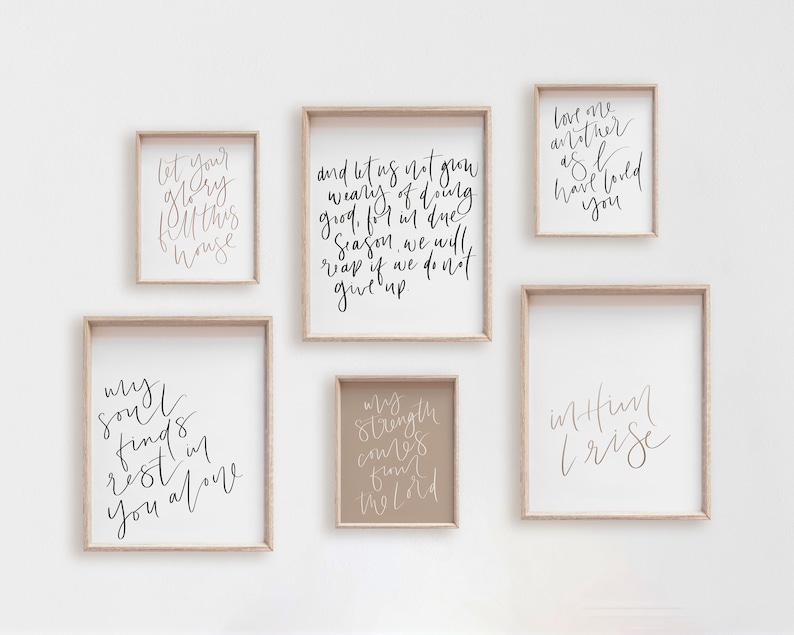 let your
glory
fill this
house
and let us not grow
weary of doing
good, for in due
season, we will
reap if we do not
give up.
love one
another
as I
have loved
you
my
soul
finds
rest in
you alone
my
strength
comes
from
the Lord
in Him
I rise